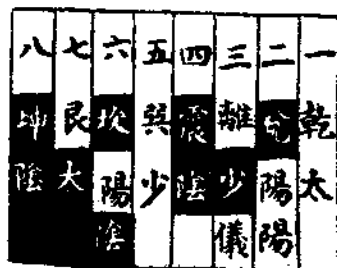 一乾太
二兌陽陽
三離少儀
四震陰
五巽少
六坎陽陰
七艮太
八坤陰